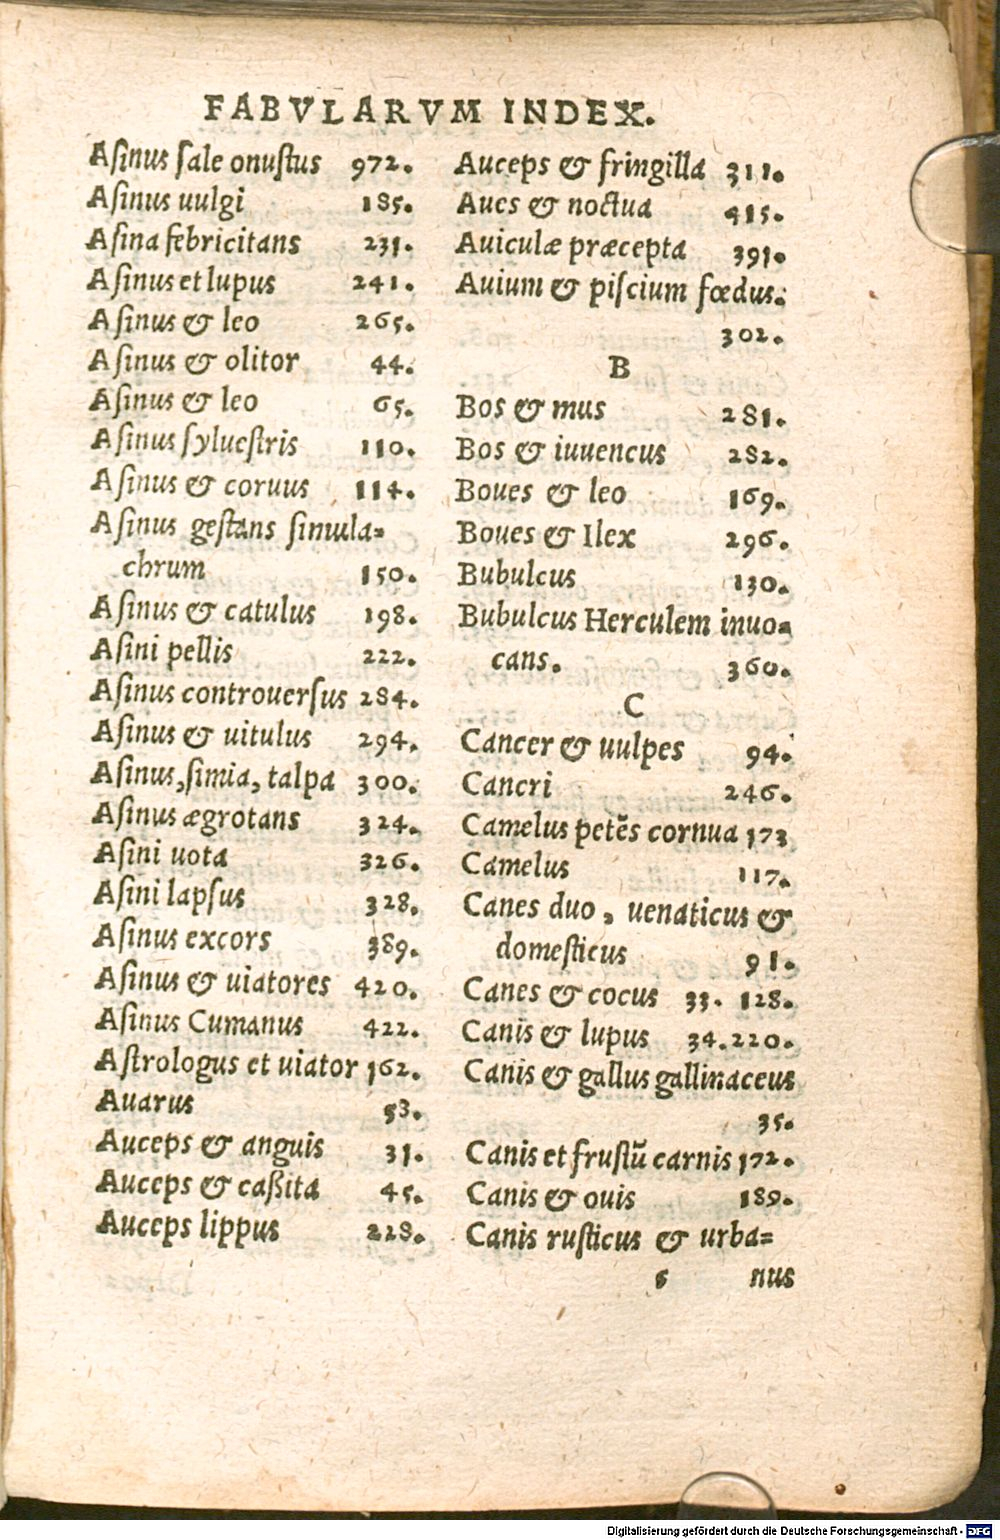 FABVLARVM INDEX.
Asinus sale onustus 972.
Asinus uulgi 185.
Asina febricitans 231.
Asinus et lupus 241.
Asinus & leo 265.
Asinus & olitor 44.
Asinus & leo 65.
Asinus syluestris 110.
Asinus & coruus 114.
Asinus gestans simula=
chrum 150.
Asinus & catulus 198.
Asini pellis 222.
Asinus controuersus 284.
Asinus & uitulus 294.
Asinus, simia, talpa 300.
Asinus ægrotans 324.
Asini uota 326.
Asini lapsus 328.
Asinus excors 389.
Asinus & uiatores 420.
Asinus Cumanus 422.
Astrologus et uiator 162.
Auarus 53.
Auceps & anguis 31.
Auceps & caßita 45.
Auceps lippus 228.
Auceps & fringilla 311.
Aues & noctua 415.
Auiculæ præcepta 391.
Auium & piscium fœdus.
302.
B
Bos & mus 281.
Bos & iuuencus 282.
Boues & leo 169.
Boues & Ilex 296.
Bubulcus 130.
Bubulcus Herculem inuo=
cans. 360.
C
Cancer & uulpes 94.
Cancri 246.
Camelus petẽs cornua 173
Camelus 117.
Canes duo, uenaticus &
domesticus 91.
Canes & cocus 33. 128.
Canis & lupus 34. 220.
Canis & gallus gallinaceus
35.
Canis et frustũ carnis 172.
Canis & ouis 189.
Canis rusticus & urba=
s nus
Digitalisierung gefördert durch die Deutsche Forschungsgemeinschaft - DFG